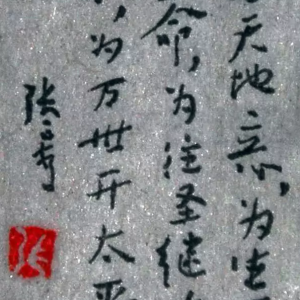 天地立心,为生
命,为往圣继
,为万世开太平
张